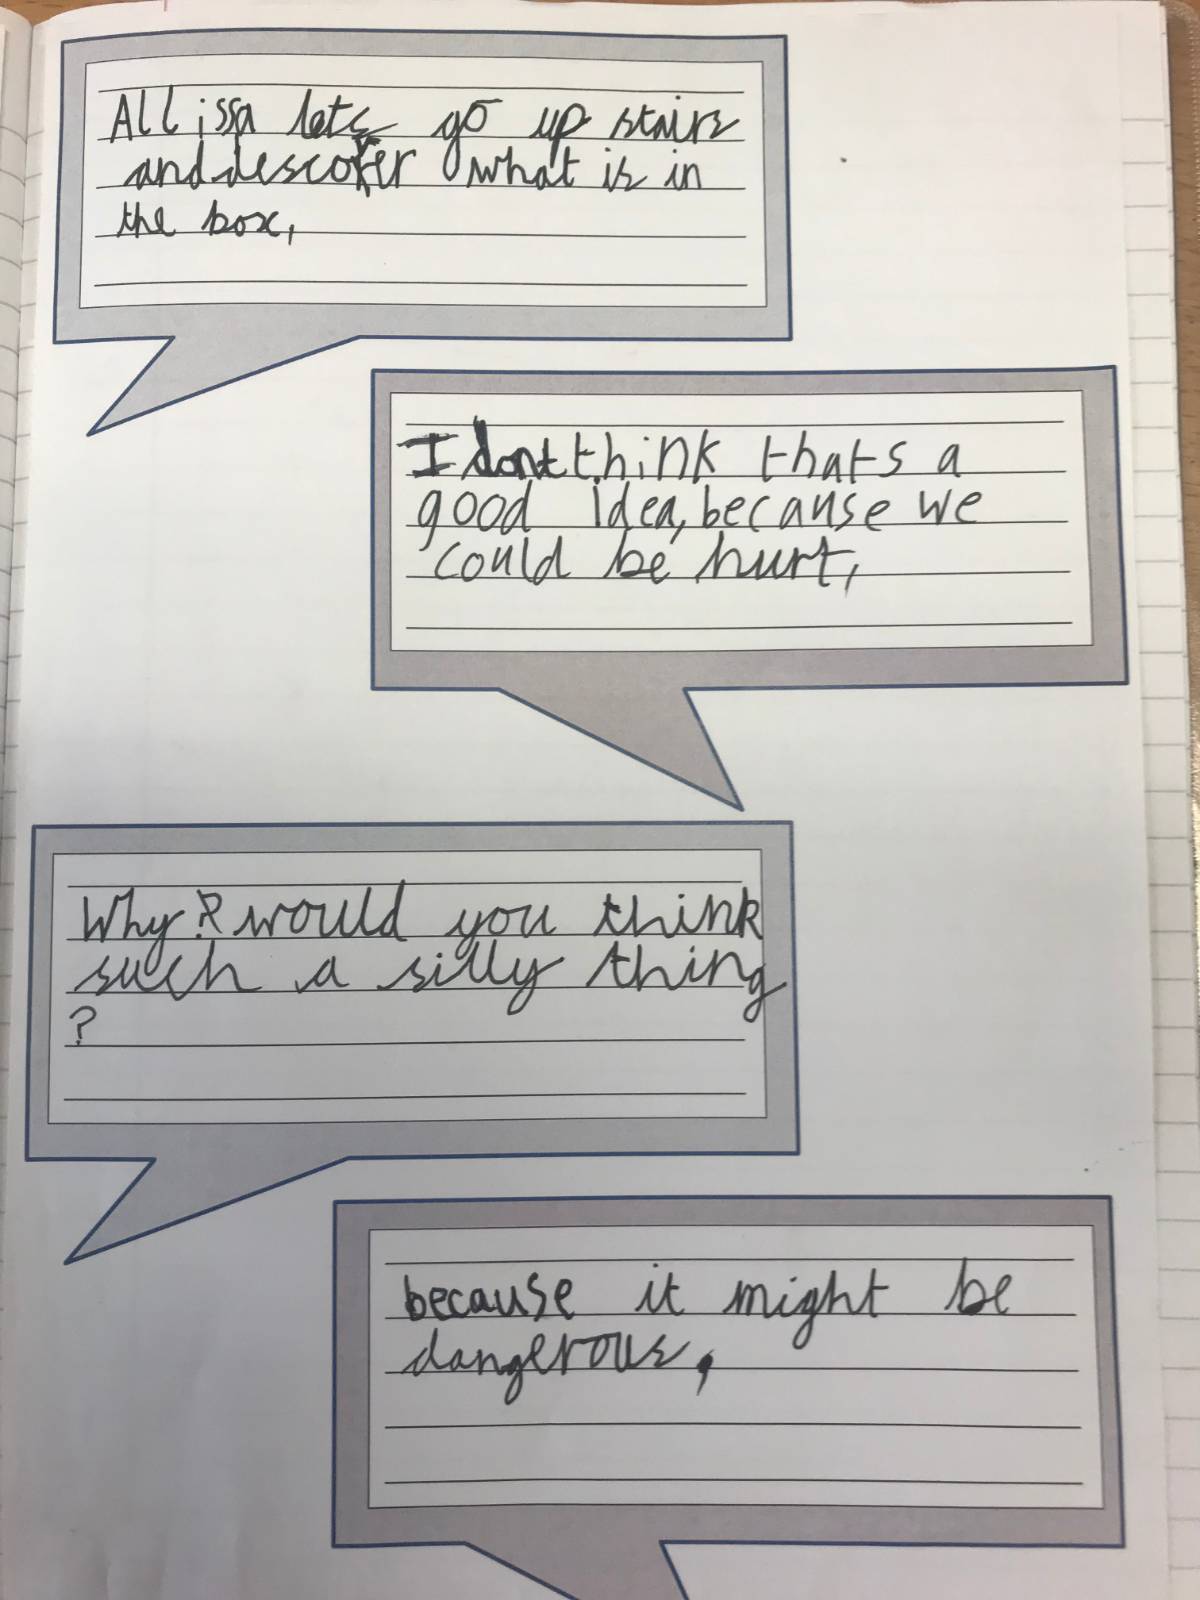 Allissa lets go up stairs
and descover what is in
the box,
I dont think thats a
good idea, because we
could be hurt,
Why? would you think
such a silly thing
?
because it might be
dangerous,